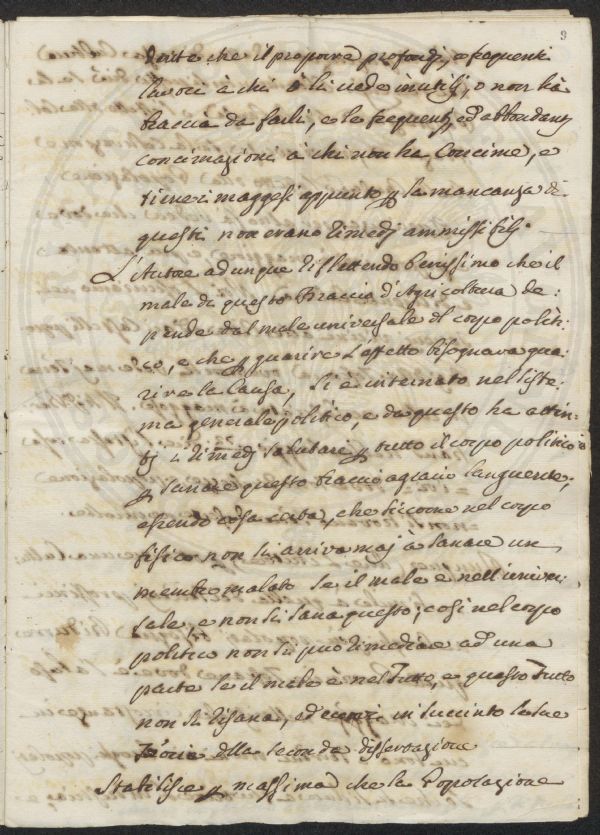 9
dette che il proporre profondi, e frequenti
lavori à chi ò li vede inutili, ò non hà
braccia da farli, e le frequenti, ed'abbondanti
concimazioni à chi non ha Concime, e
tiene i maggesi appunto p la mancanza di
questi non erano rimedj ammissibili.
L'Autore adunque riflettendo benissimo che il
male di questo Braccio d'Agricoltura de:
pende dal male universale del corpo politi:
co, e che p guarire l'effetto bisognava gua:
rire la Causa, si è internato nel siste:
ma generale politico, e da questo ha attin:
ti i rimedj salutari p tutto il corpo politico
p sanare questo braccio agrario languente;
essendo cosa certa, che siccome nel corpo
fisico non si arriva maj à sanare un
membro malato se il male è nell'univer:
sale, e non si sana questo; così nel corpo
politico non si può rimediare ad'una
parte se il male è nel Tutto, e questo Tutto
non si risana, ed' eccovi in succinto le sue
Teorie della seconda dissertazione
Stabilisce p massima che la Popolazione